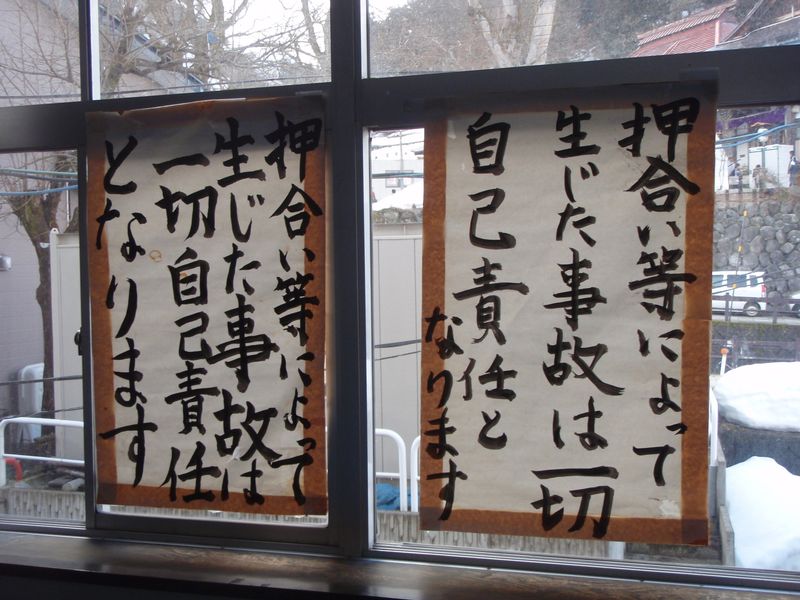 押合い等によって
生じた事故は一切
自己責任と
なります
押合い等によって
生じた事故は
一切自己責任
となります